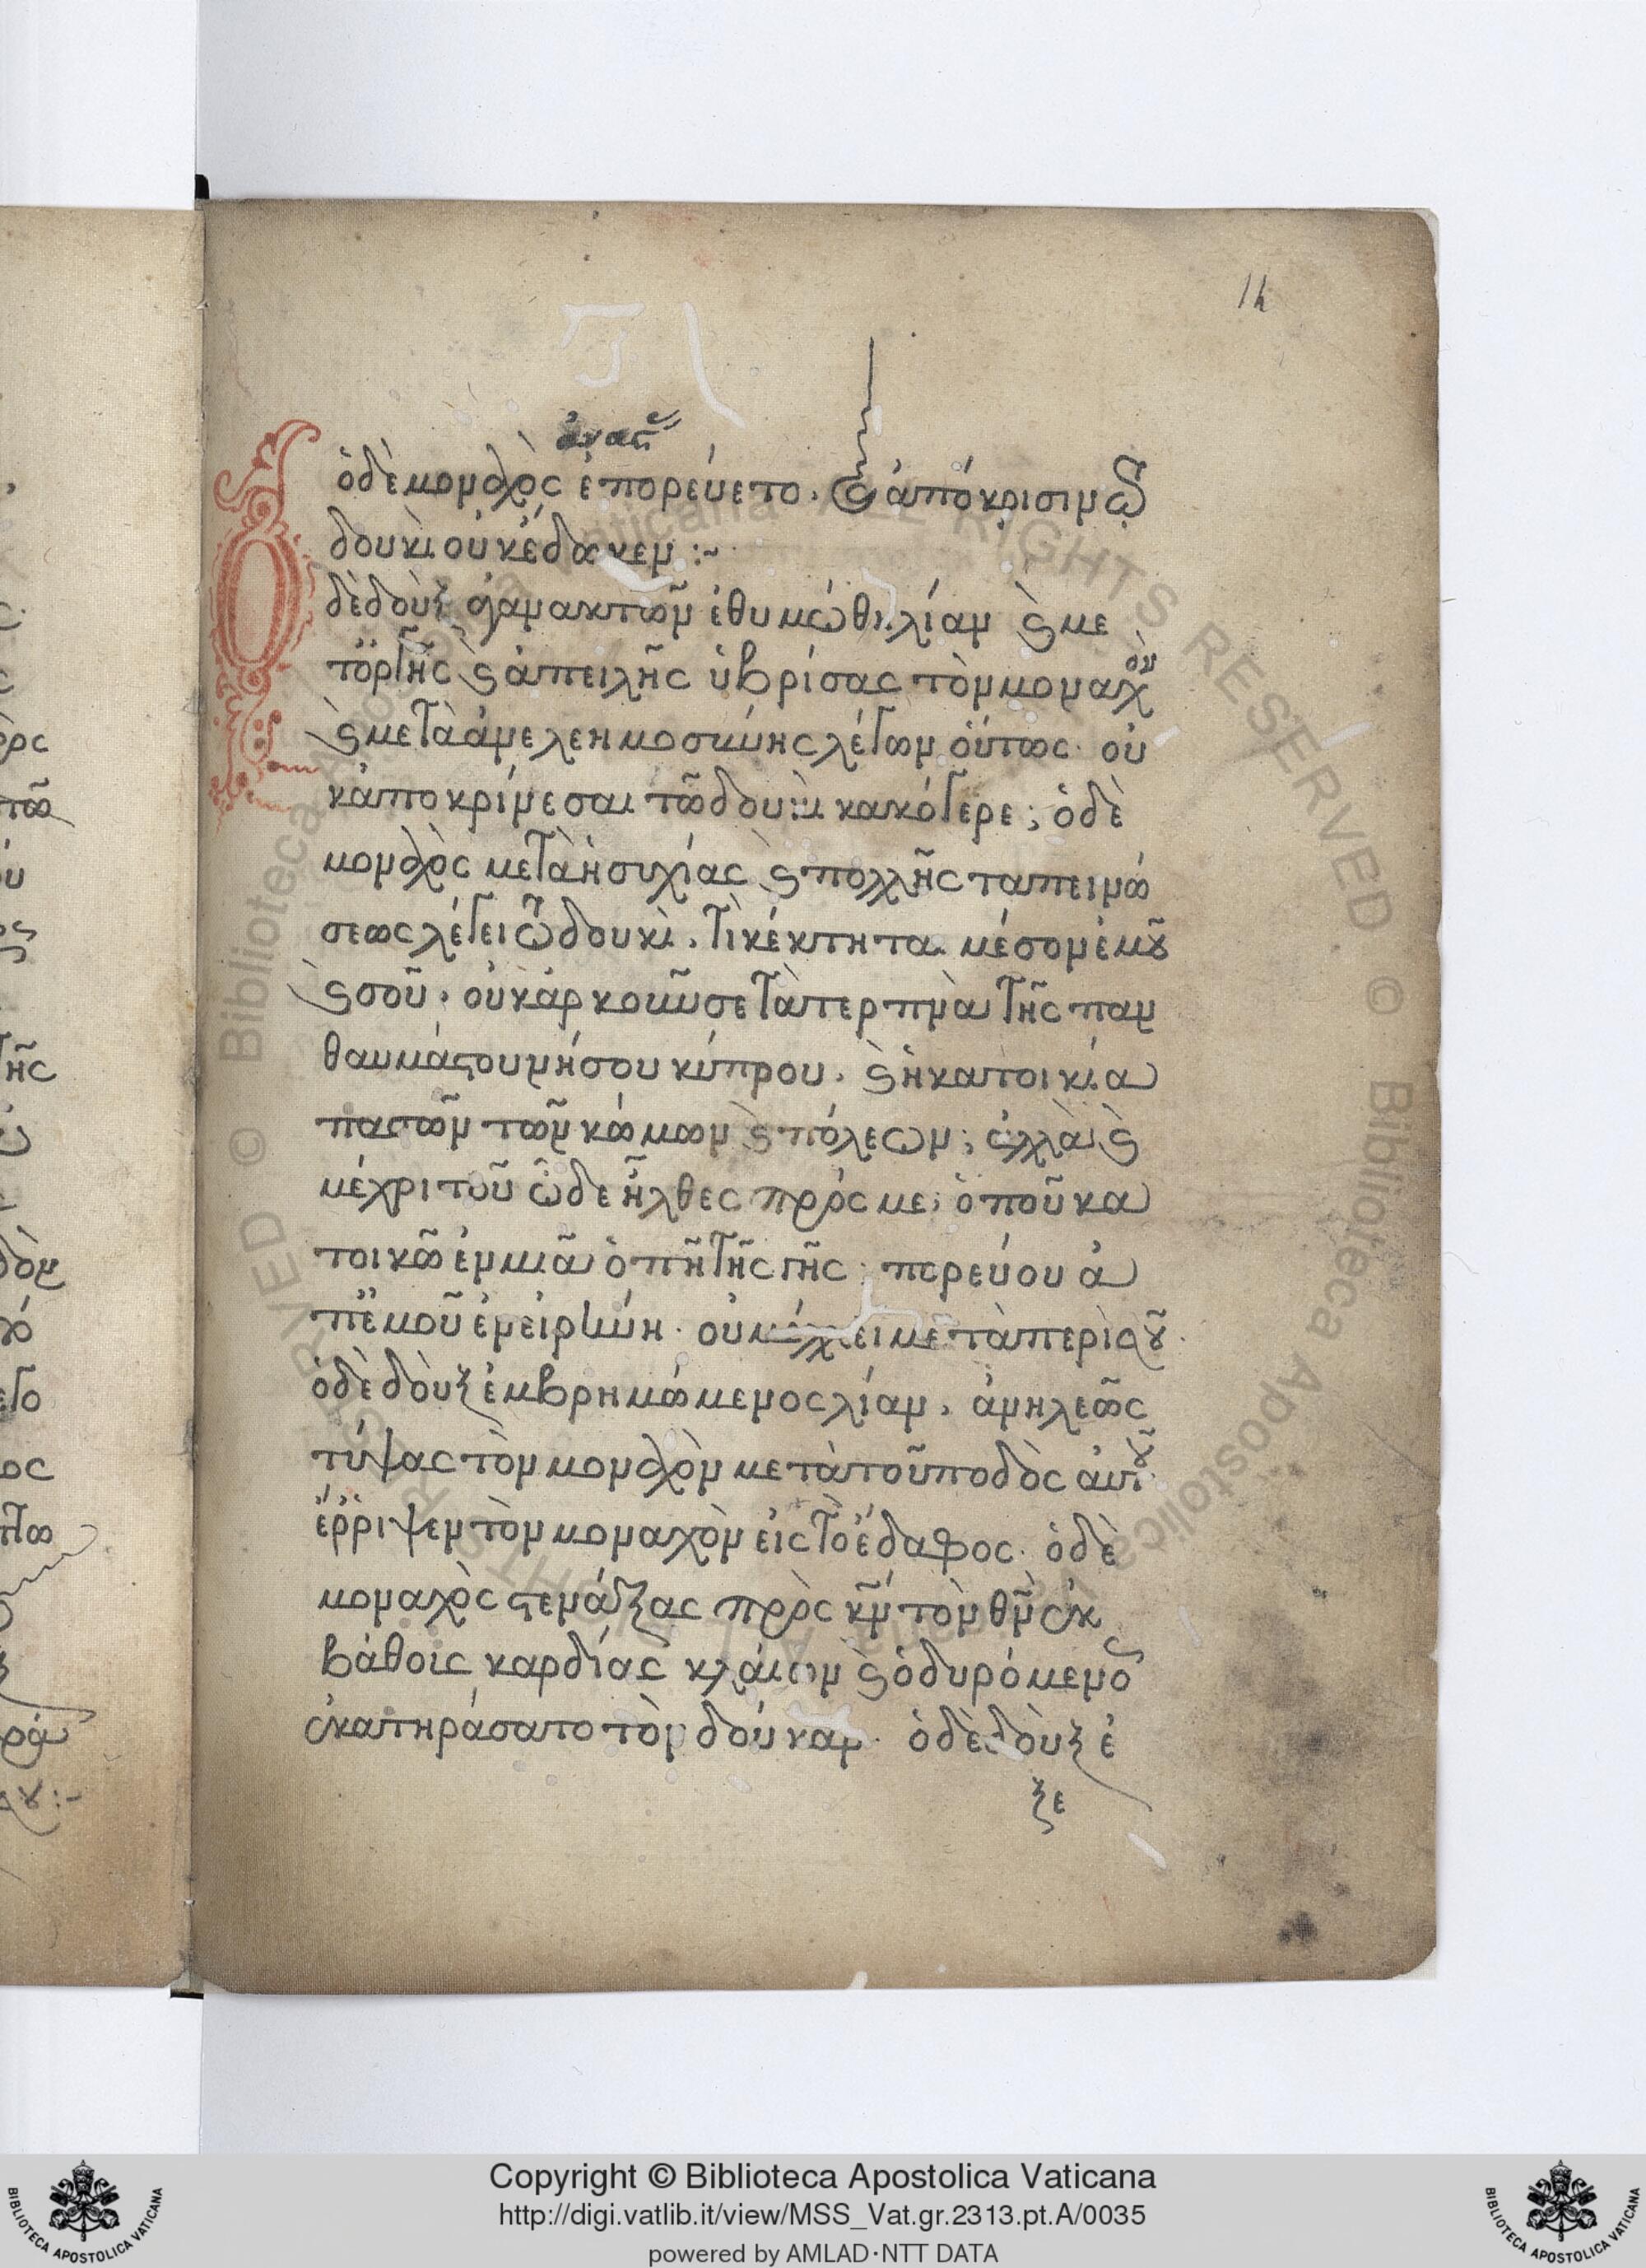 14
ὁ δὲ μοναχὸς ἐπορεύετο. καὶ ἀπόκρισιν τῷ
δουκὶ οὐκ ἔδωκεν :~
δὲ δοὺξ ἀγανακτῶν ἐθυμώθη λίαν καὶ με
τ' ὀργῆς καὶ ἀπειλῆς ὑβρίσας τὸν μοναχὸν
καὶ μετὰ ἀνελεημοσύνης λέγων οὕτως· οὐ
κ ἀποκρίνεσαι τῶ δουκὶ κακόγερε; ὁ δὲ
μοναχὸς μετὰ ἡσυχίας καὶ πολλῆς ταπεινώ
σεως λέγει τῶ δουκὶ. τὶ κέκτηται μέσον ἐμοῦ
καὶ σοῦ. οὐκ ἀρκοῦν σε τὰ τερπνὰ τῆς παν
θαυμάστου νήσου κύπρου. καὶ ἡ κατοικία
πασῶν τῶν κώμων καὶ πόλεων; ἀλλὰ καὶ
μέχρι τοῦ ὧδε ἦλθες πρός με, ὁποῦ κα
τοικῶ ἐν μιᾶ ὀπῆ τῆς γῆς· πορεύου ἀ
π' ἐμοῦ ἐν εἰρήνη. οὐ μέλλει με τὰ περὶ σοῦ.
ὁ δὲ δοὺξ ἐμβρημώμενος λίαν, ἀνηλεῶς
τύψας τὸν μοναχὸν μετὰ τοῦ ποδὸς αὐτοῦ
ἔρριψεν τὸν μοναχὸν εἰς τὸ ἔδαφος· ὁ δὲ
μοναχὸς στενάξας πρὸς κύριον τὸν θεὸν ἐκ
βάθοις καρδίας κλάιων καὶ ὀδυρόμενος
ἐκατηράσατο τὸν δούκαν. ὁ δὲ δοὺξ ἐ
ξε
Copyright © Biblioteca Apostolica Vaticana
http://digi.vatlib.it/view/MSS_Vat.gr.2313.pt.A/0035
powered by AMLAD·NTT DATA
BIBLIOTECA APOSTOLICA VATICANA
BIBLIOTECA APOSTOLICA VATICANA